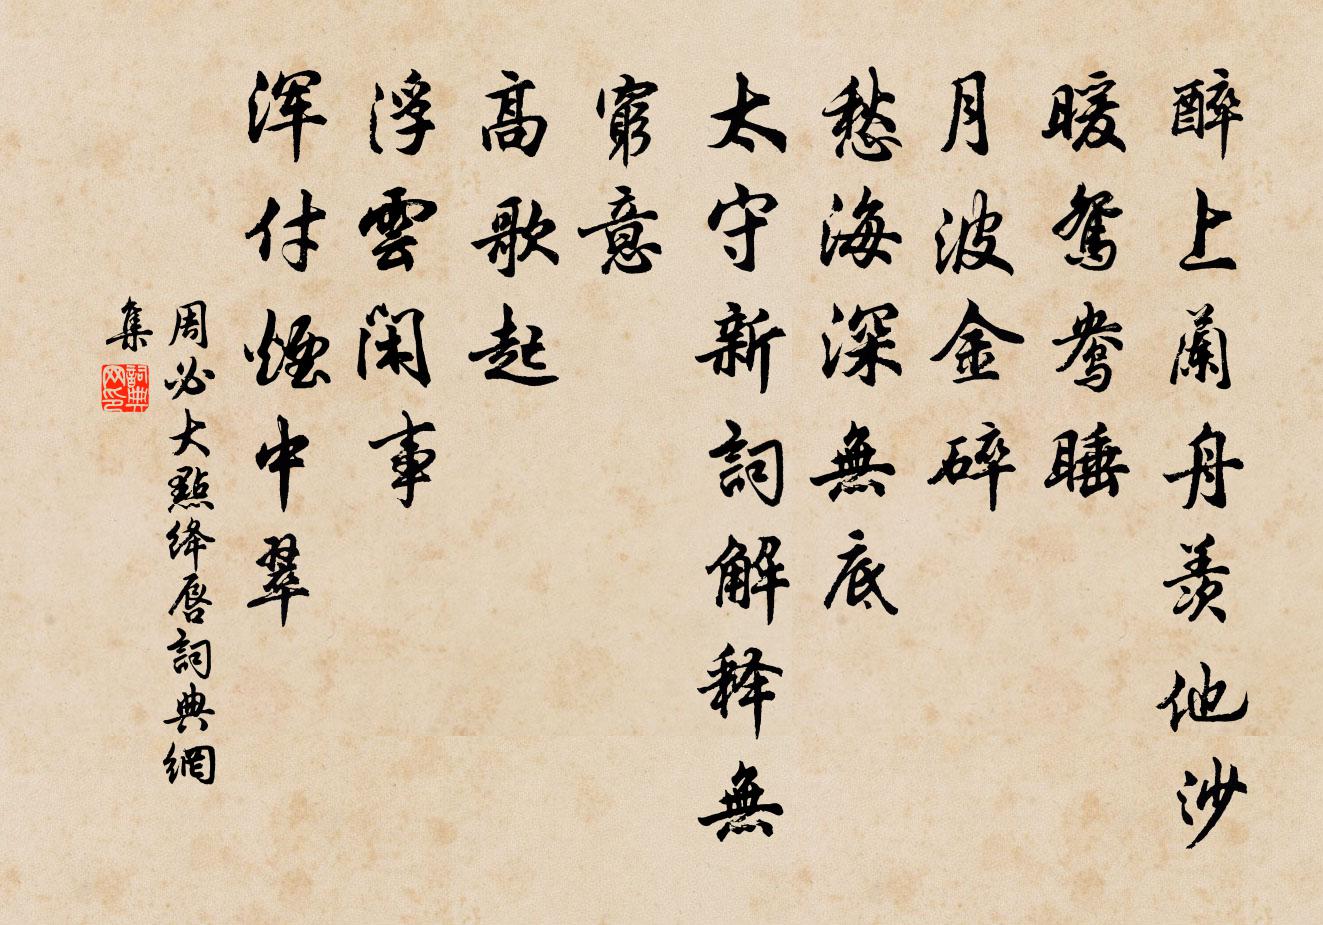 醉上蘭舟羨他沙
暖鴛鴦睡
月波金碎
愁海深無底
太守新詞解释無
窮意
高歌起
浮雲閑事
浑付煙中翠
周必大點绛唇詞典網
集
詞典网印